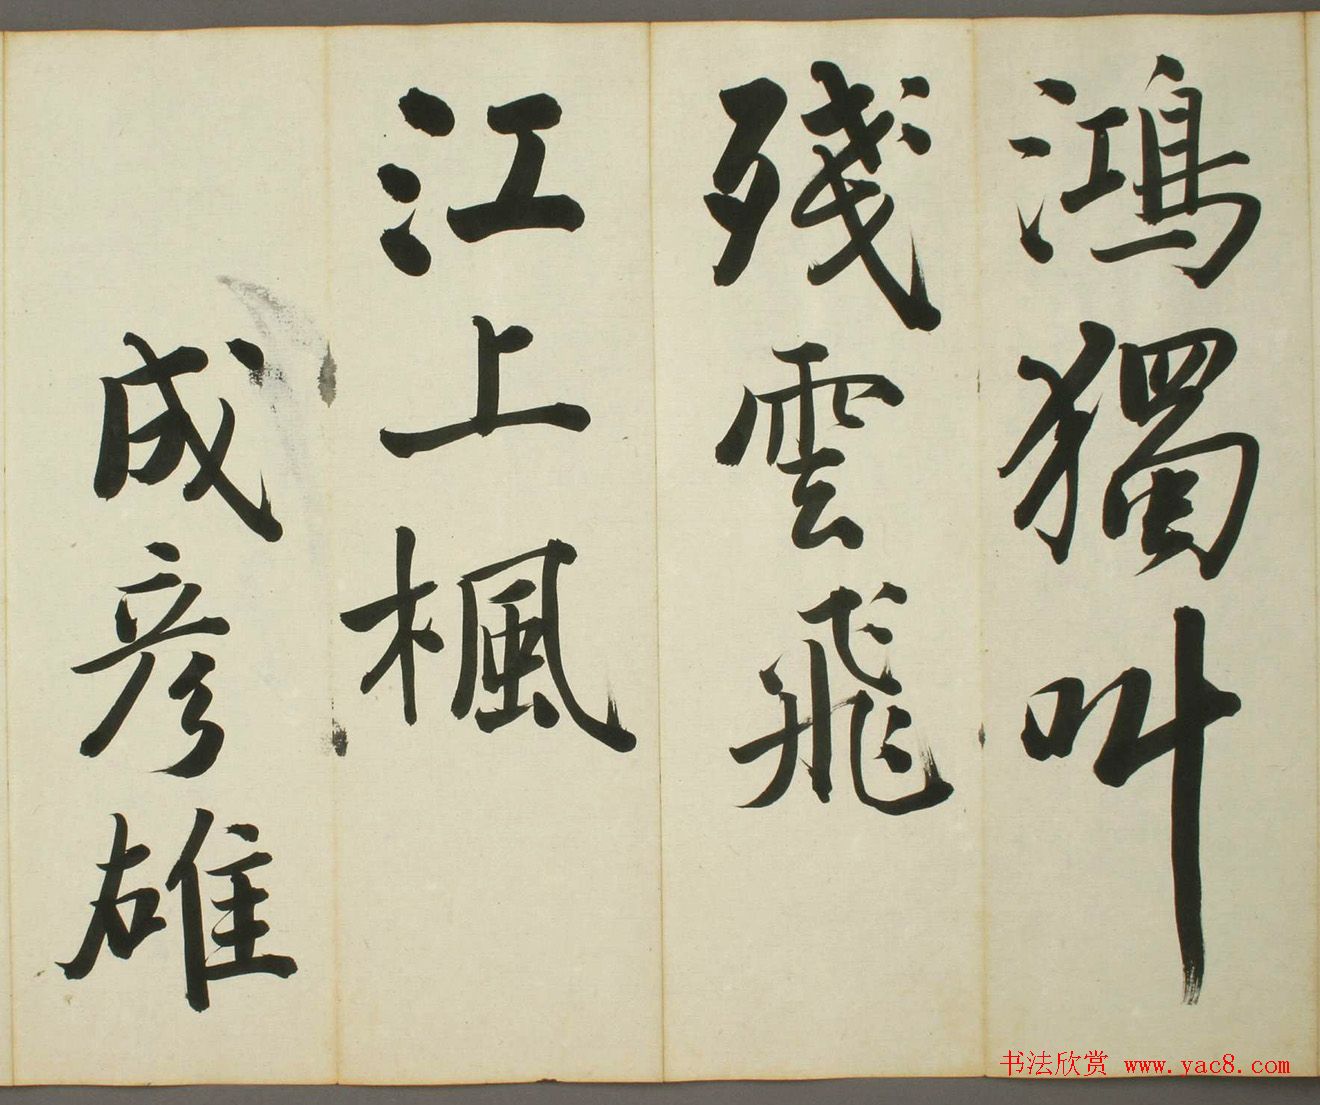 鴻獨叫
殘雲飛
江上楓
成彥雄
书法欣赏 www.yac8.com